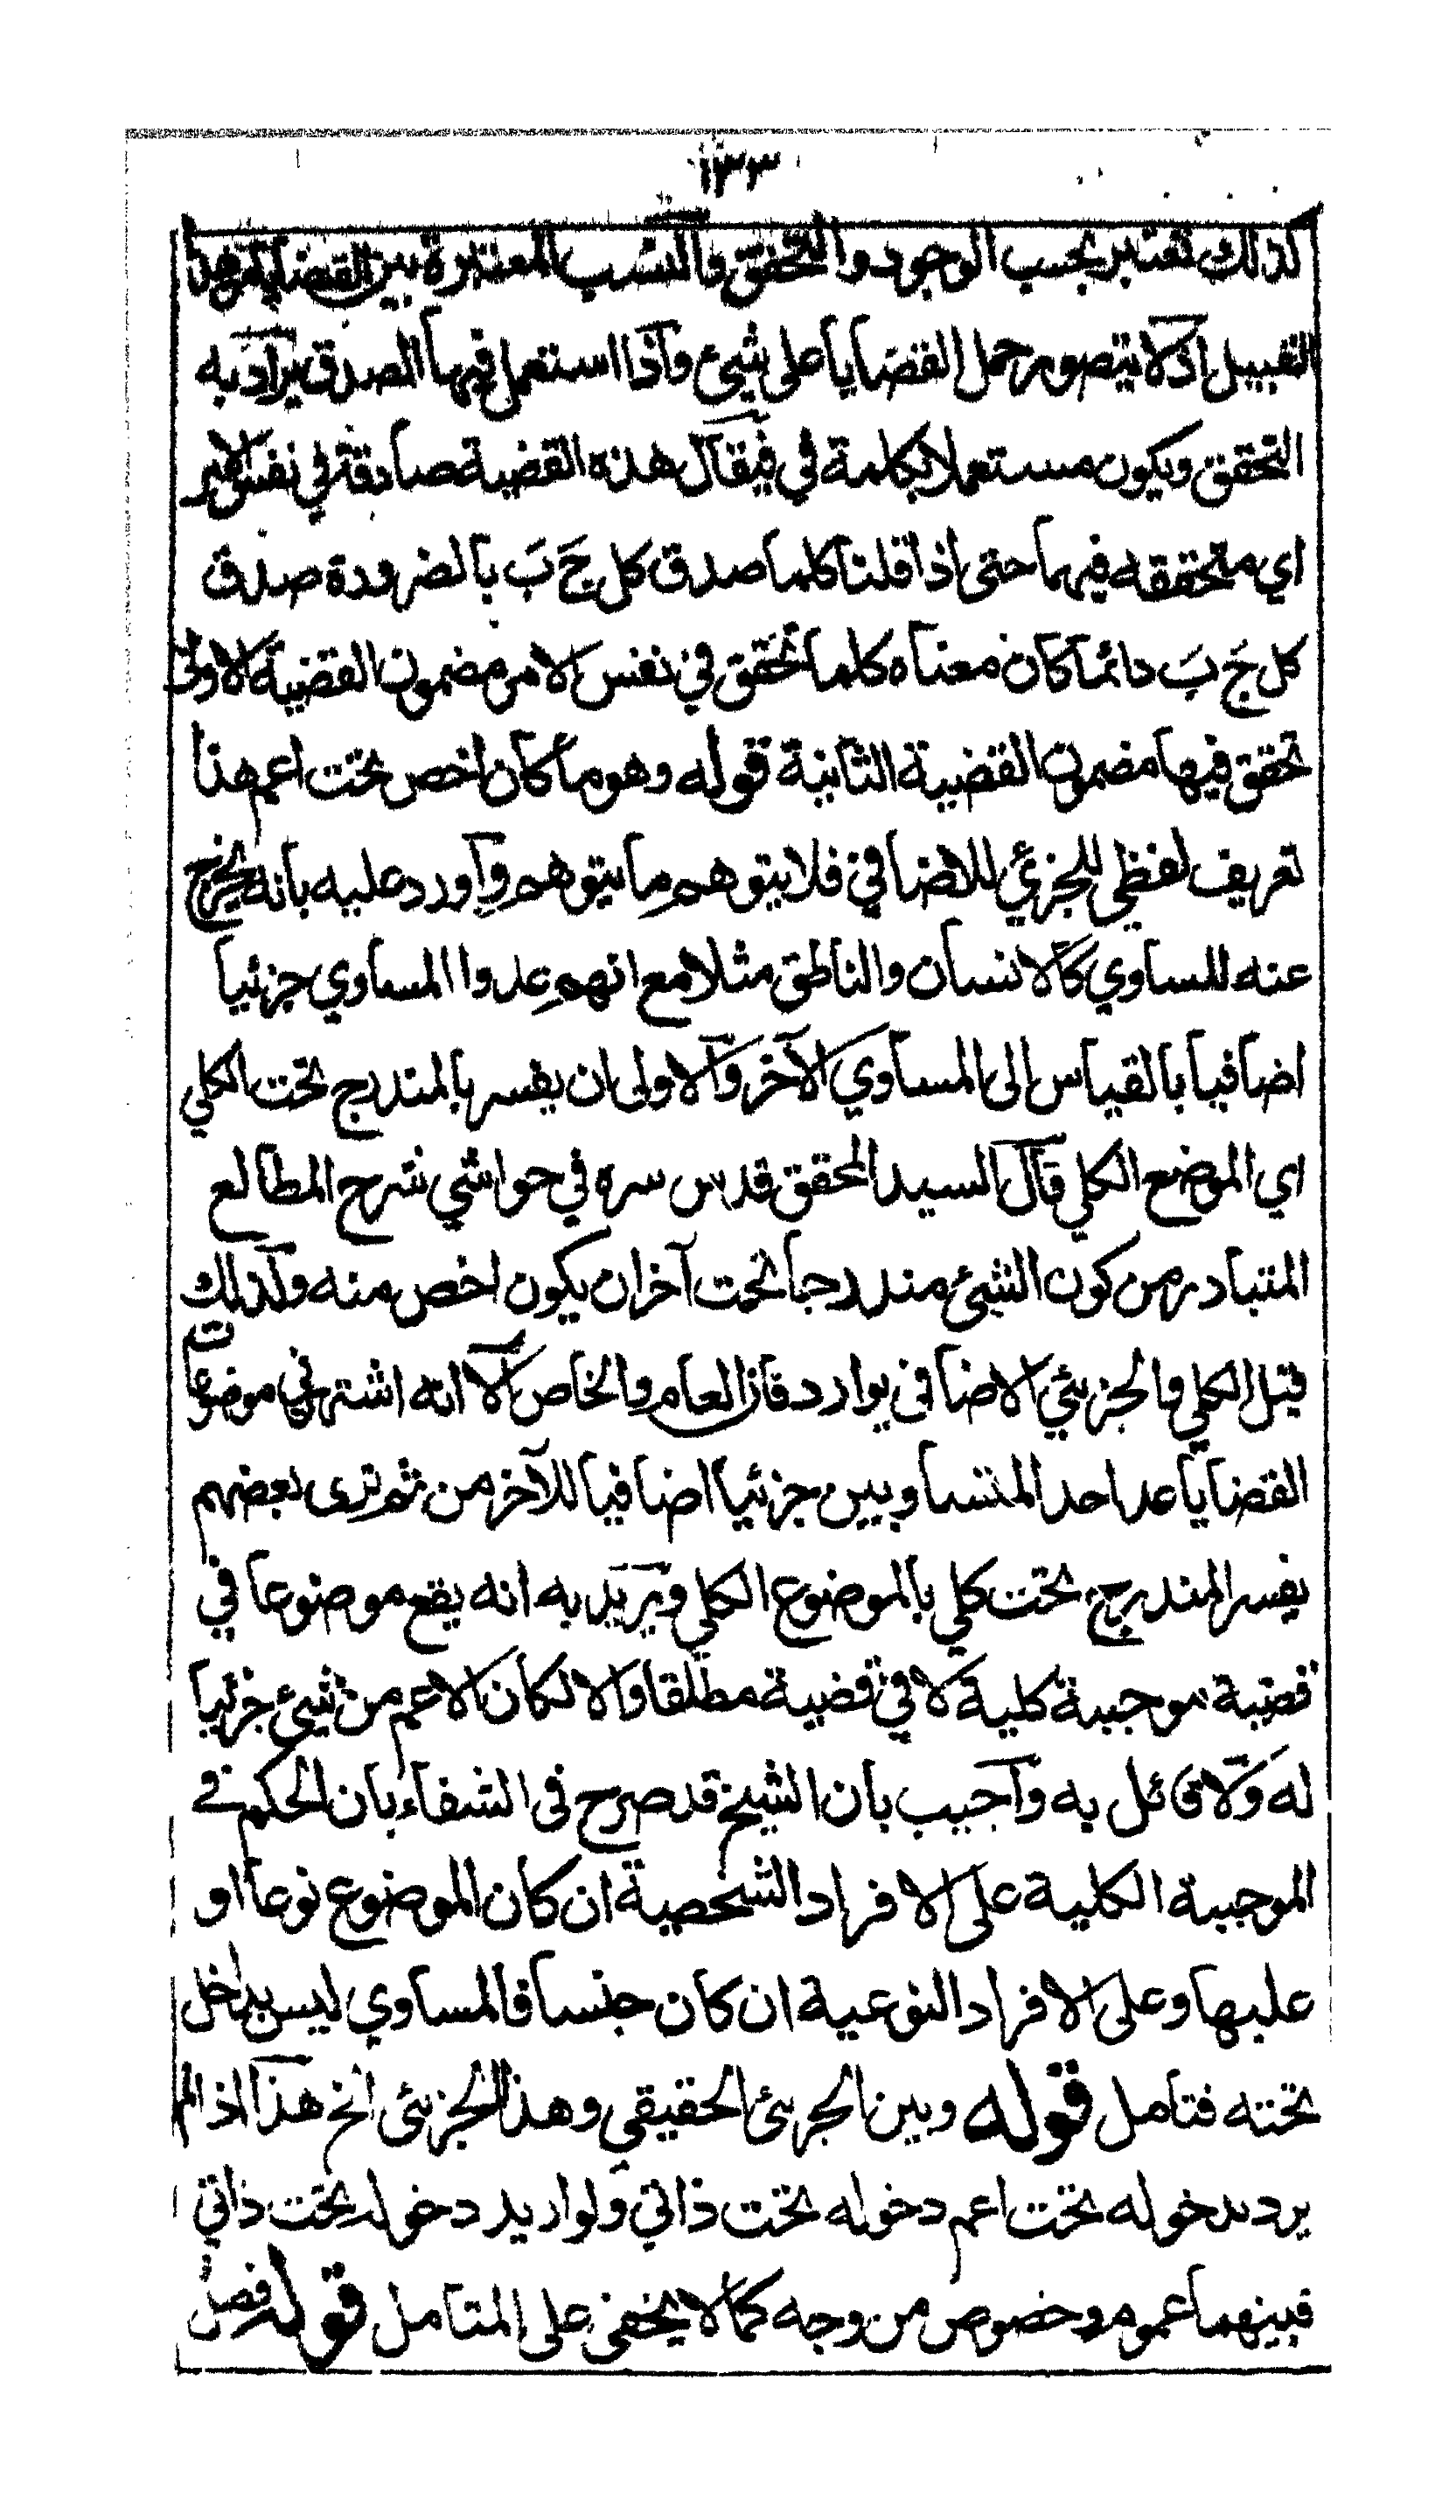 ١٣٣
كذلك تعتبر بحسب الوجود والتحقق فالنسب المعتبرة بين القضايا من هذا
القبيل اذ لا يتصور حمل القضايا على شيئ واذا استعمل فيها الصدق يراد به
التحقق ويكون مستعملا بكلمة في فيقال هذه القضية صادقة في نفس الامر
اي متحققه فيها حتى اذا قلنا كلما صدق كل جَ بَ بالضرودة صدق
كل جَ بَ دائما كان معناه كلما تحقق في نفس الامر مضمون القضية الاولى
تحقق فيها مضمون القضية الثانية قوله وهو ما كان اخص تحت اعم هذا
تعريف لفظي للجزئي للاضافي فلا يتوهم ما يتوهم وآورد عليه بانه يخرج
عنه للساوي كالانسان والناطق مثلا مع انهم عدوا المساوي جزئيا
اضافيا بالقياس الى المساوي الآخر وآلاولى ان يفسر بالمندرج تحت الكلي
اي الموضع الكلي قآل السيد المحقق قدس سره في حواشي شرح المطالع
المتبادر من كون الشيئ مندرجا تحت آخر ان يكون اخص منه ولذلك
قيل الكلي والجزيئي الاضافي يوارد فان العام والخاص آلا انه اشتهر في موضوعات
القضايا عد احد المتساويين جزئيا اضافيا للآخر من ثم ترى بعضهم
يفسر المندرج تحت كلي بالموضوع الكلي ويريد به انه يقع موضوعا في
قضية موجبة كلية لا في قضية مطلقا والا لكان الاعم من شيئ جزئيا
له ولا قائل به وآجيب بان الشيخ قد صرح في الشفاء بان الحكم في
الموجبة الكلية على الافراد الشخصية ان كان الموضوع نوعا او
عليها وعلى الافراد النوعية ان كان جنسا فالمساوي ليس بداخل
تحته فتامل قوله وبين الجزيئ الحقيقي وهذا الجزيئي الخ هذا اذا لم
يرد بدخوله تحت اعم دخوله تحت ذاتي ولو اريد دخوله تحت ذاتي
فبينهما عموم وخصوص من وجه كما لا يخفى على المتامل قوله فصل